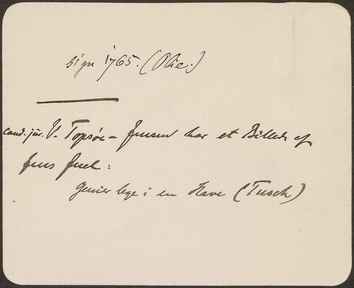 sign 1765. (Olie.)
cand. jur. V. Topsøe-Jensen har et Billede af
Jens Juel:
Genier lege i en Have (Tusch)